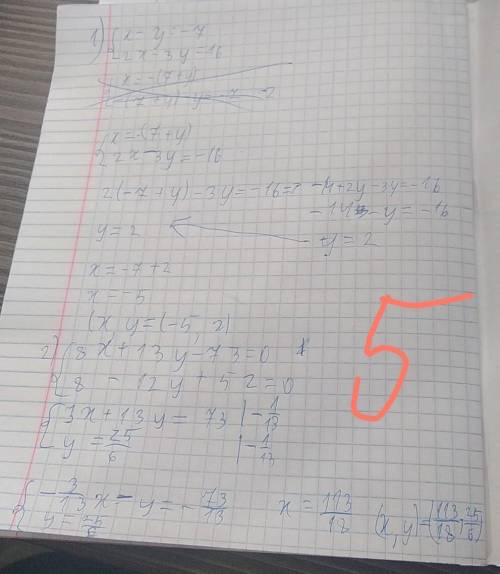 1) { x - y = -7
2x - 3y = -16
x = -(7+y)
-(7+y) - y = -7
{ x = -(7+y)
2x - 3y = -16
2(-7+y) - 3y = -16 => -14+2y-3y=-16
-14 - y = -16
y = 2
y = 2
x = -7+2
x = -5
(x, y = (-5, 2)
2) { 8x + 13y - 73 = 0
8 - 12y + 52 = 0
{ 3x + 13y = 73 | -1/13
y = 25/6 | -1/13
{ -3/13 x - y = -73/13
y = 25/6
x = 113/18 (x, y) = (113/18, 25/6)
5